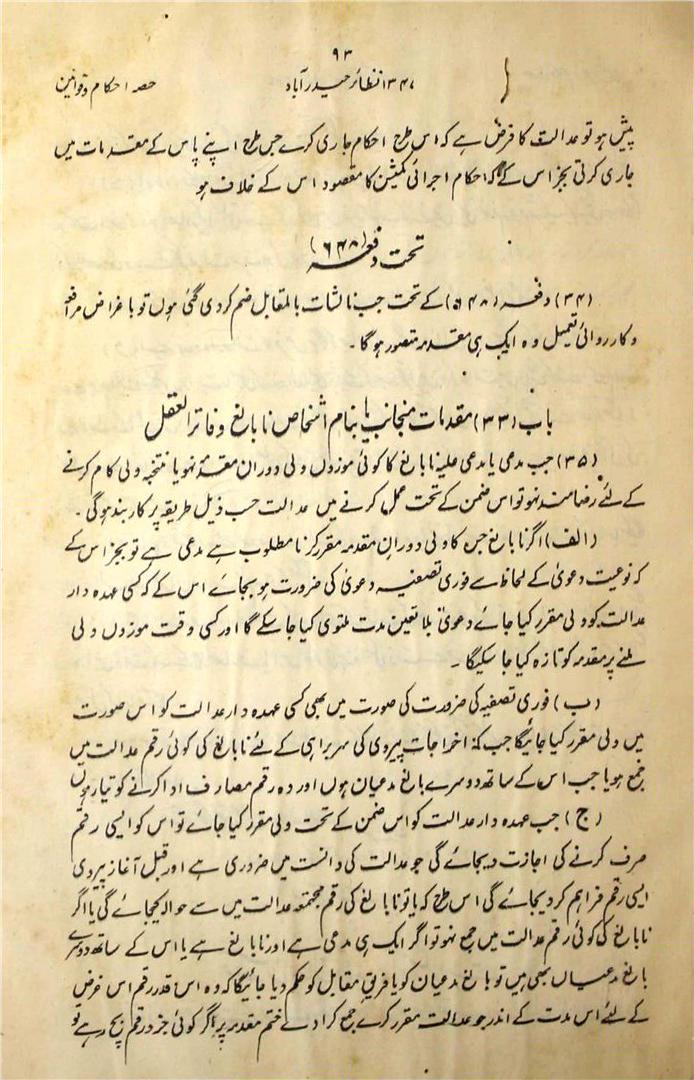 ۹۳
۱۳۴۷ نظائر حیدرآباد
حصہ احکام و قوانین
پیش ہو تو عدالت کا فرض ہے کہ اس طرح احکام جاری کرے جس طرح اپنے پاس کے مقدمات میں
جاری کرتی بجز اس کے کہ احکام اجرائی کمیشن کا مقصود اس کے خلاف ہو
تحت دفعہ (۶۴۸)
(۳۴) دفعہ (۵۴۸) کے تحت جب نالشات بالمقابل ضم کردی گئی ہوں تو باغراض مرافعہ
وکارروائی تعمیل وہ ایک ہی مقدمہ متصور ہوگا ۔
باب (۳۳) مقدمات منجانب یا بنام اشخاص نابالغ و فاتر العقل
(۳۵) جب مدعی یا مدعی علیہ نابالغ کا کوئی موزوں ولی دوران مقدمہ نہو یا منتخبہ ولی کام کرنے
کے لئے رضامند نہو تو اس ضمن کے تحت عمل کرنے میں عدالت حسب ذیل طریقہ پر کاربند ہوگی ۔
(الف) اگر نابالغ جس کا ولی دوران مقدمہ مقرر کرنا مطلوب ہے مدعی ہے تو بجز اس کے
کہ نوعیت دعویٰ کے لحاظ سے فوری تصفیہ دعویٰ کی ضرورت ہو بجائے اس کے کہ کسی عہدہ دار
عدالت کو ولی مقرر کیا جائے دعویٰ بلا تعین مدت ملتوی کیا جا سکے گا اور کسی وقت موزوں ولی
ملنے پر مقدمہ کو تازہ کیا جا سکیگا ۔
(ب) فوری تصفیہ کی ضرورت کی صورت میں بھی کسی عہدہ دار عدالت کو اس صورت
میں ولی مقرر کیا جائیگا جب کہ اخراجات پیروی کی سربراہی کے لئے نابالغ کی کوئی رقم عدالت میں
جمع ہو یا جب اس کے ساتھ دوسرے بالغ مدعیان ہوں اور وہ رقم مصارف ادا کرنے کو تیار ہوں
(ج) جب عہدہ دار عدالت کو اس ضمن کے تحت ولی مقرر کیا جائے تو اس کو ایسی رقم
صرف کرنے کی اجازت دیجائے گی جو عدالت کی دانست میں ضروری ہے اور قبل آغاز پیروی
ایسی رقم فراہم کردیجائے گی اس طرح کہ یا تو نابالغ کی رقم مجتمعہ عدالت میں سے حوالہ کیجائے گی یا اگر
نابالغ کی کوئی رقم عدالت میں جمع نہو تو اگر ایک ہی مدعی ہے اور نابالغ ہے یا اس کے ساتھ دوسرے
بالغ مدعیاں بھی ہیں تو بالغ مدعیان کو یا فریق مقابل کو حکم دیا جائیگا کہ وہ اس قدر رقم اس غرض
کے لئے اس مدت کے اندر جو عدالت مقرر کرے جمع کرادے ختم مقدمہ پر اگر کوئی جزو رقم بچ رہے تو